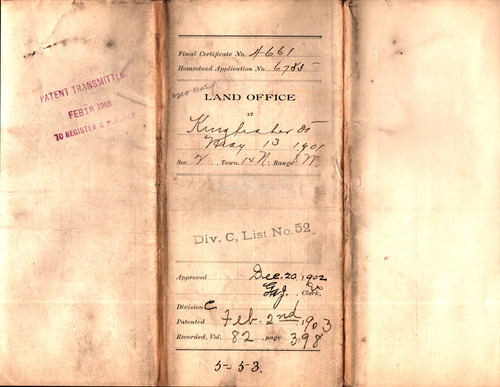 PATENT TRANSMITTED
FEB 18 1903
TO REGISTER &
Final Certificate No. 4661
Homestead Application No. 6785
LAND OFFICE
AT
Kingfisher
May 13, 1901
Sec. Town. 14 N, Range 8 W.
Div. C, List No. 52.
Approved Dec. 20, 1902
Clerk.
Division C
Patented Feb. 2nd, 1903
Recorded, Vol. 82, page 398
5-53.